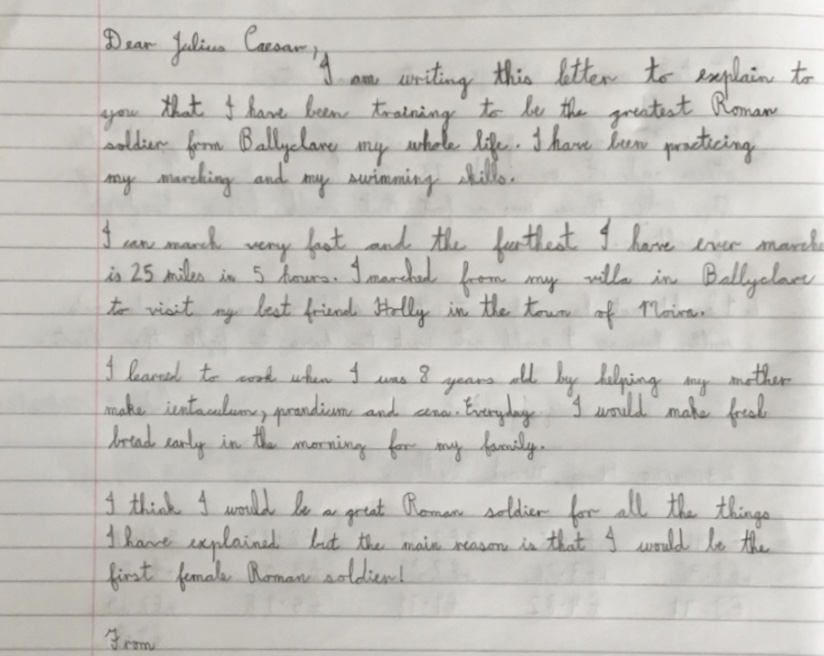 Dear Julius Caesar,
I am writing this letter to explain to
you that I have been training to be the greatest Roman
soldier from Ballyclare my whole life. I have been practicing
my marching and my swimming skills.
I can march very fast and the furthest I have ever marche
is 25 miles in 5 hours. I marched from my villa in Ballyclare
to visit my best friend Holly in the town of Moira.
I learned to cook when I was 8 years old by helping my mother
make ientaculum, prandium and cena. Everyday I would make fresh
bread early in the morning for my family.
I think I would be a great Roman soldier for all the things
I have explained but the main reason is that I would be the
first female Roman soldier!
From